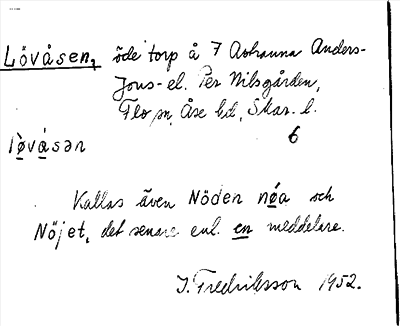 Lövåsen, öde torp å 7 Anders-
Jons- el. Per Nilsgården,
Flo sn, Åse hd, Skar. l.
6
lø̀våsən
Kallas även Nöden nø̀a och
Nöjet, det senare enl. en meddelare.
I. Fredriksson 1952.